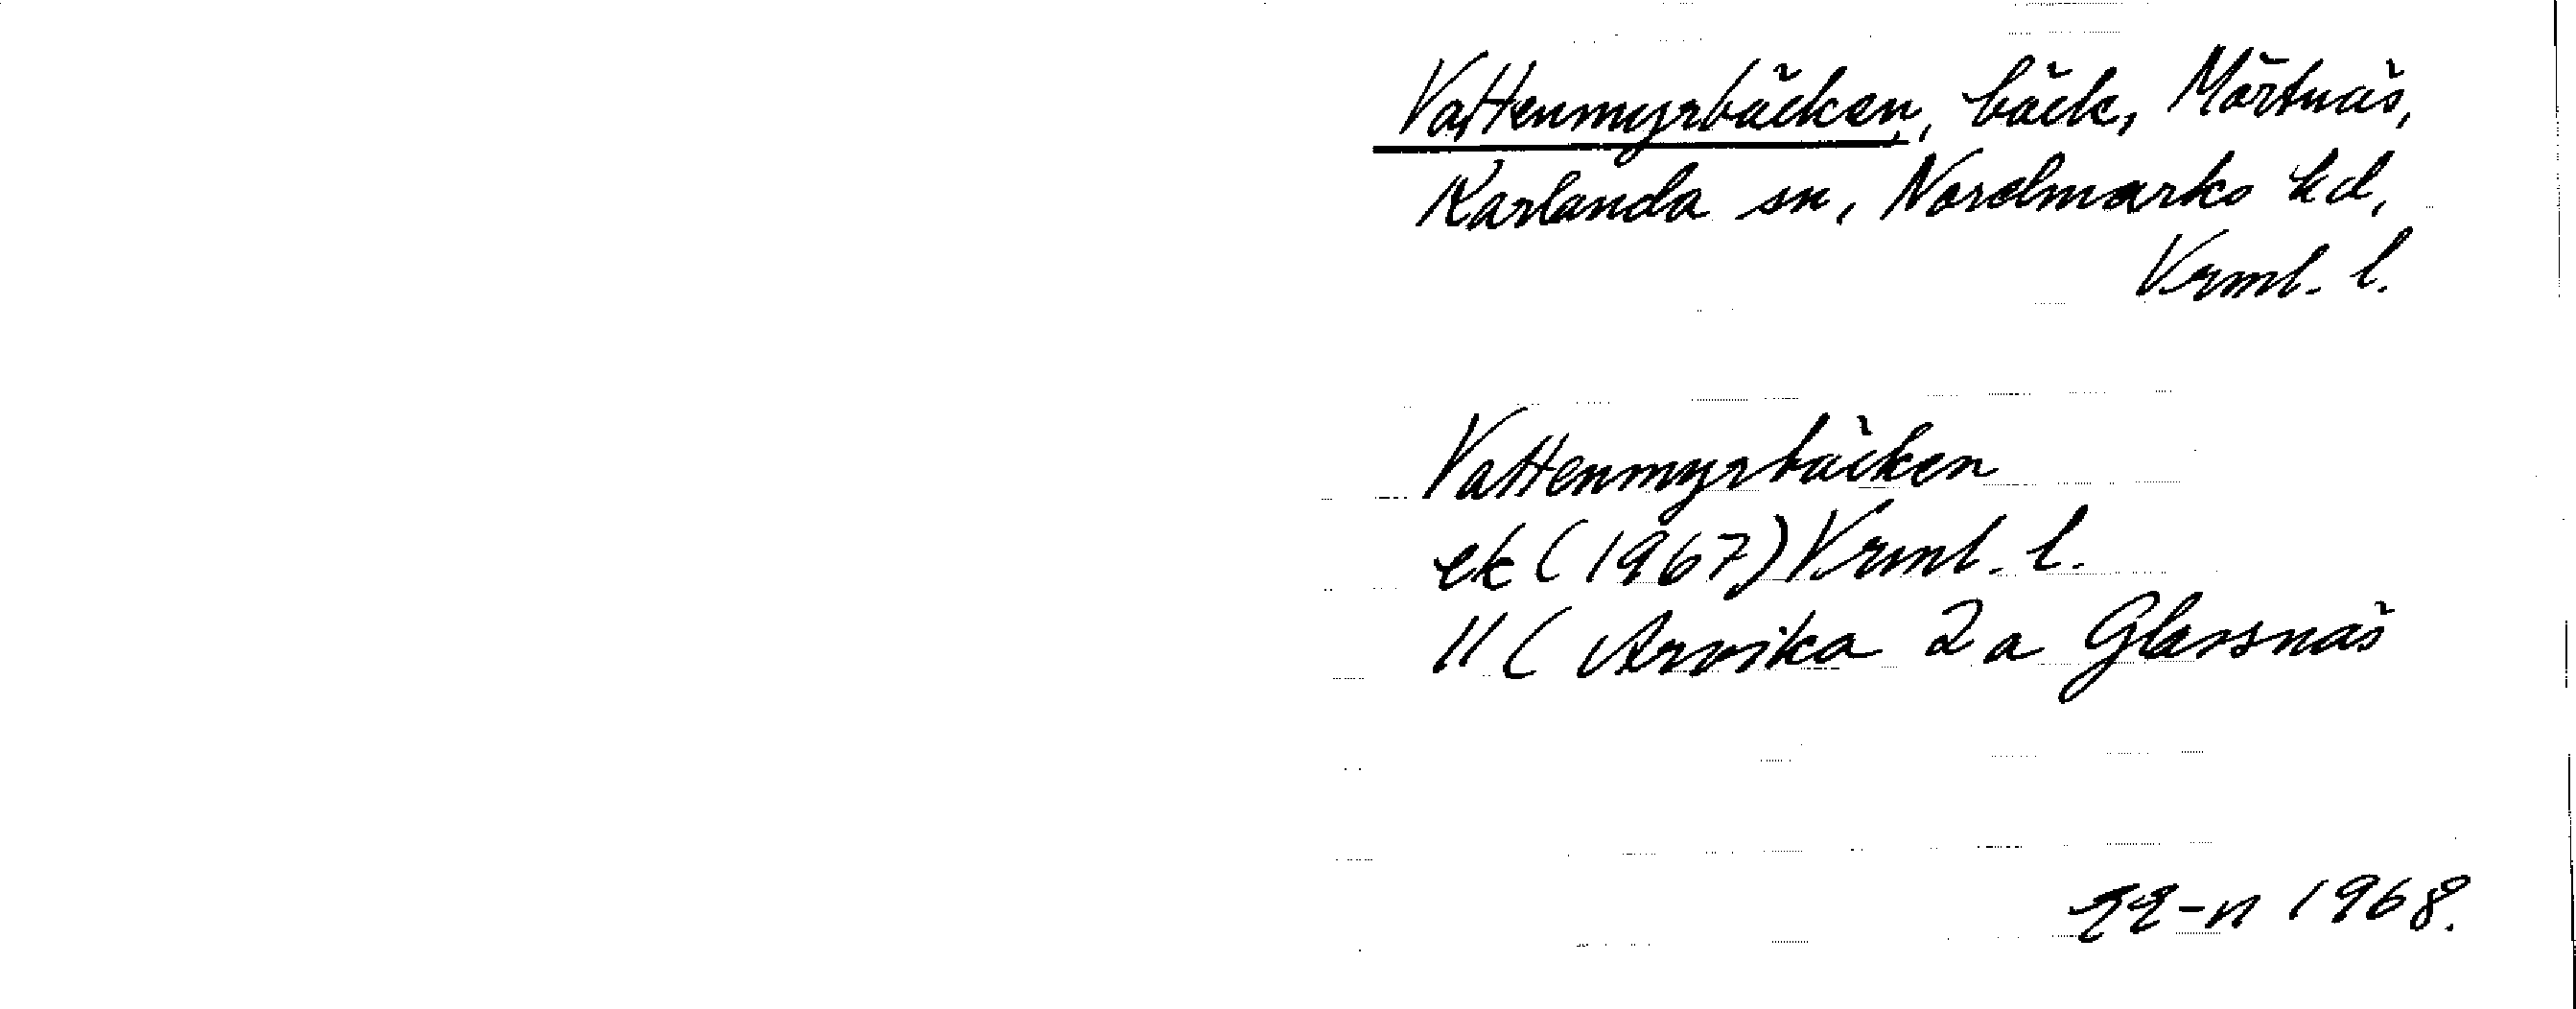 Vattenmyrbäcken, bäck, Mörtnäs,
Karlanda sn, Nordmarks hd,
Vrml. l.
Vattenmyrbäcken
ek (1967) Vrml. l.
11 C Arvika 2 a Glassnäs
1968.